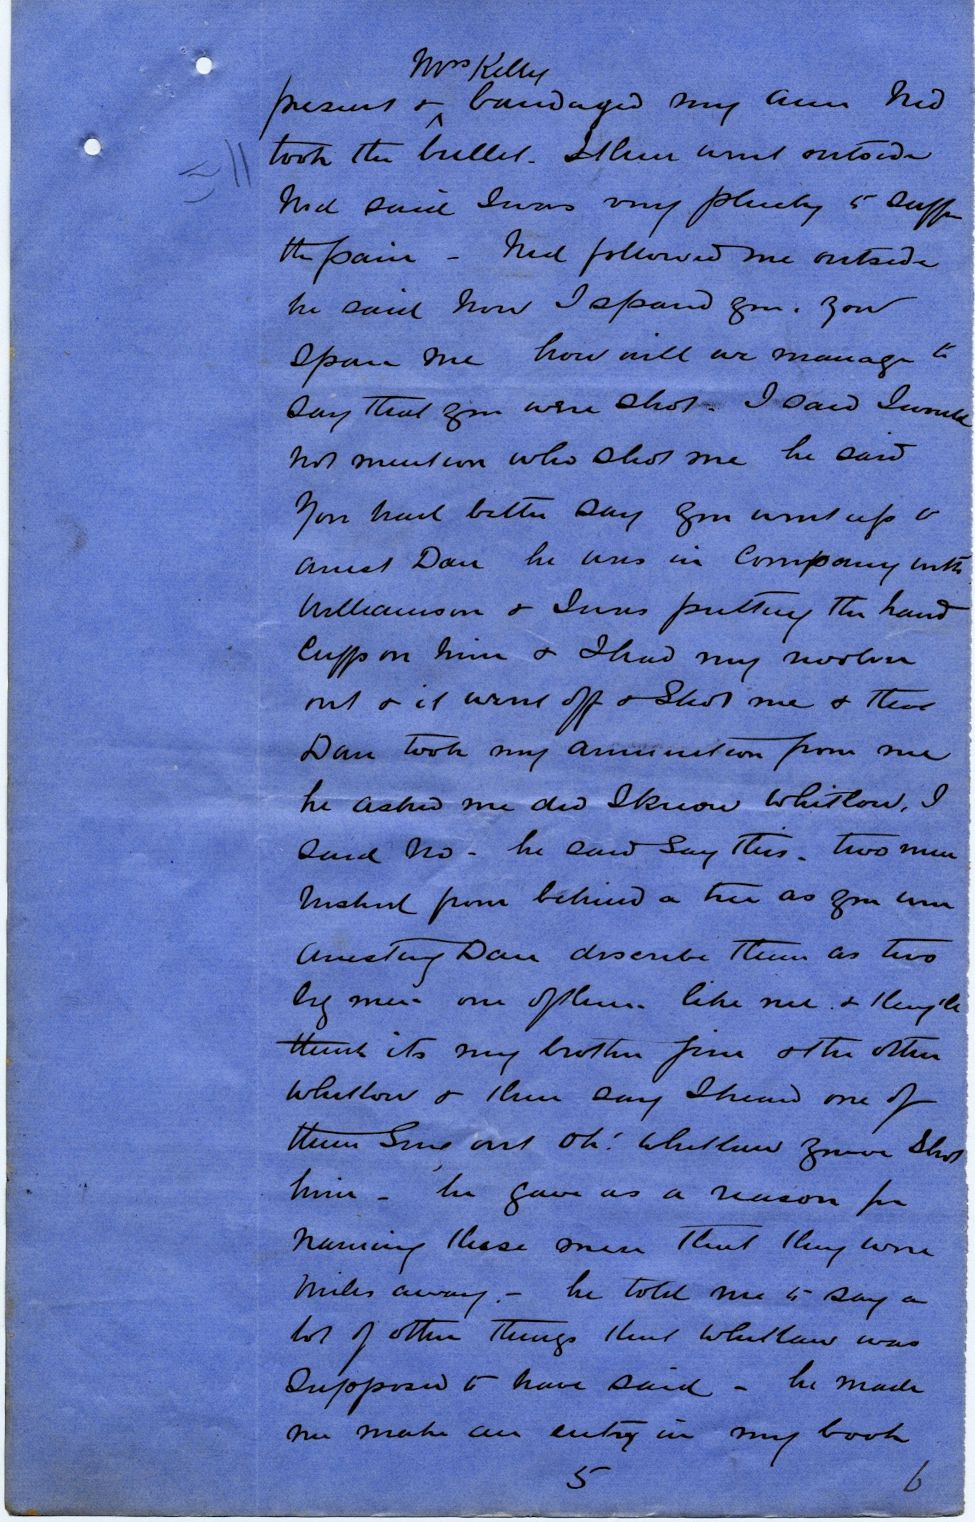 Mrs Kelly
present & bandaged my arm Ned
took the bullet. I then went outside
Ned said I was very plucky to suffer
the pain - Ned followed me outside
he said Now I spared you. You
spare me how will we manage to
say that you were shot. I said I would
not mention who shot me he said
You had better say you went up to
arrest Dan he was in Company with
Williamson & I was putting the hand
Cuffs on him & I had my revolver
out & it went off & Shot me & that
Dan took my amunition from me
he asked me did I know Whitlow, I
said No - he said Say this - two men
rushed from behind a tree as you were
arresting Dan describe them as two
big men - one of them like me & they'll
think its my brother Jim & the other
Whitlow & then say I heard one of
them Sing out Oh! Whitlaw you've Shot
him - he gave as a reason for
naming these men that they were
miles away - he told me to say a
lot of other things that Whitlaw was
Supposed to have said - he made
me make an entry in my book
5 6